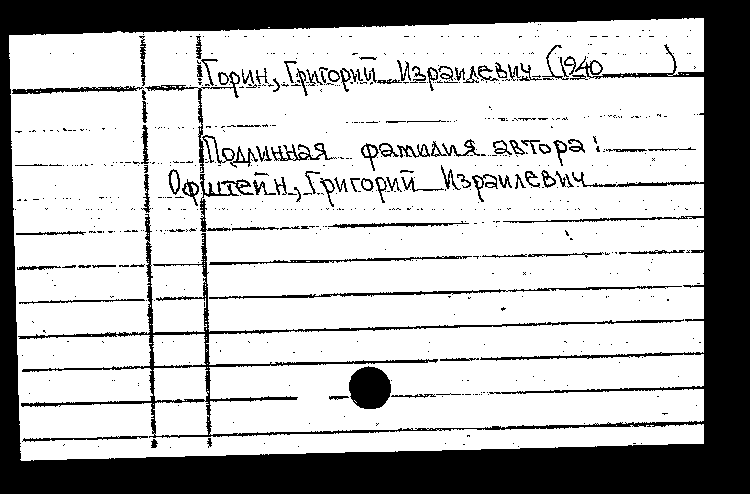 Горин, Григорий Израилевич (1940      )
Подлинная фамилия автора:
Офштейн, Григорий Израилевич